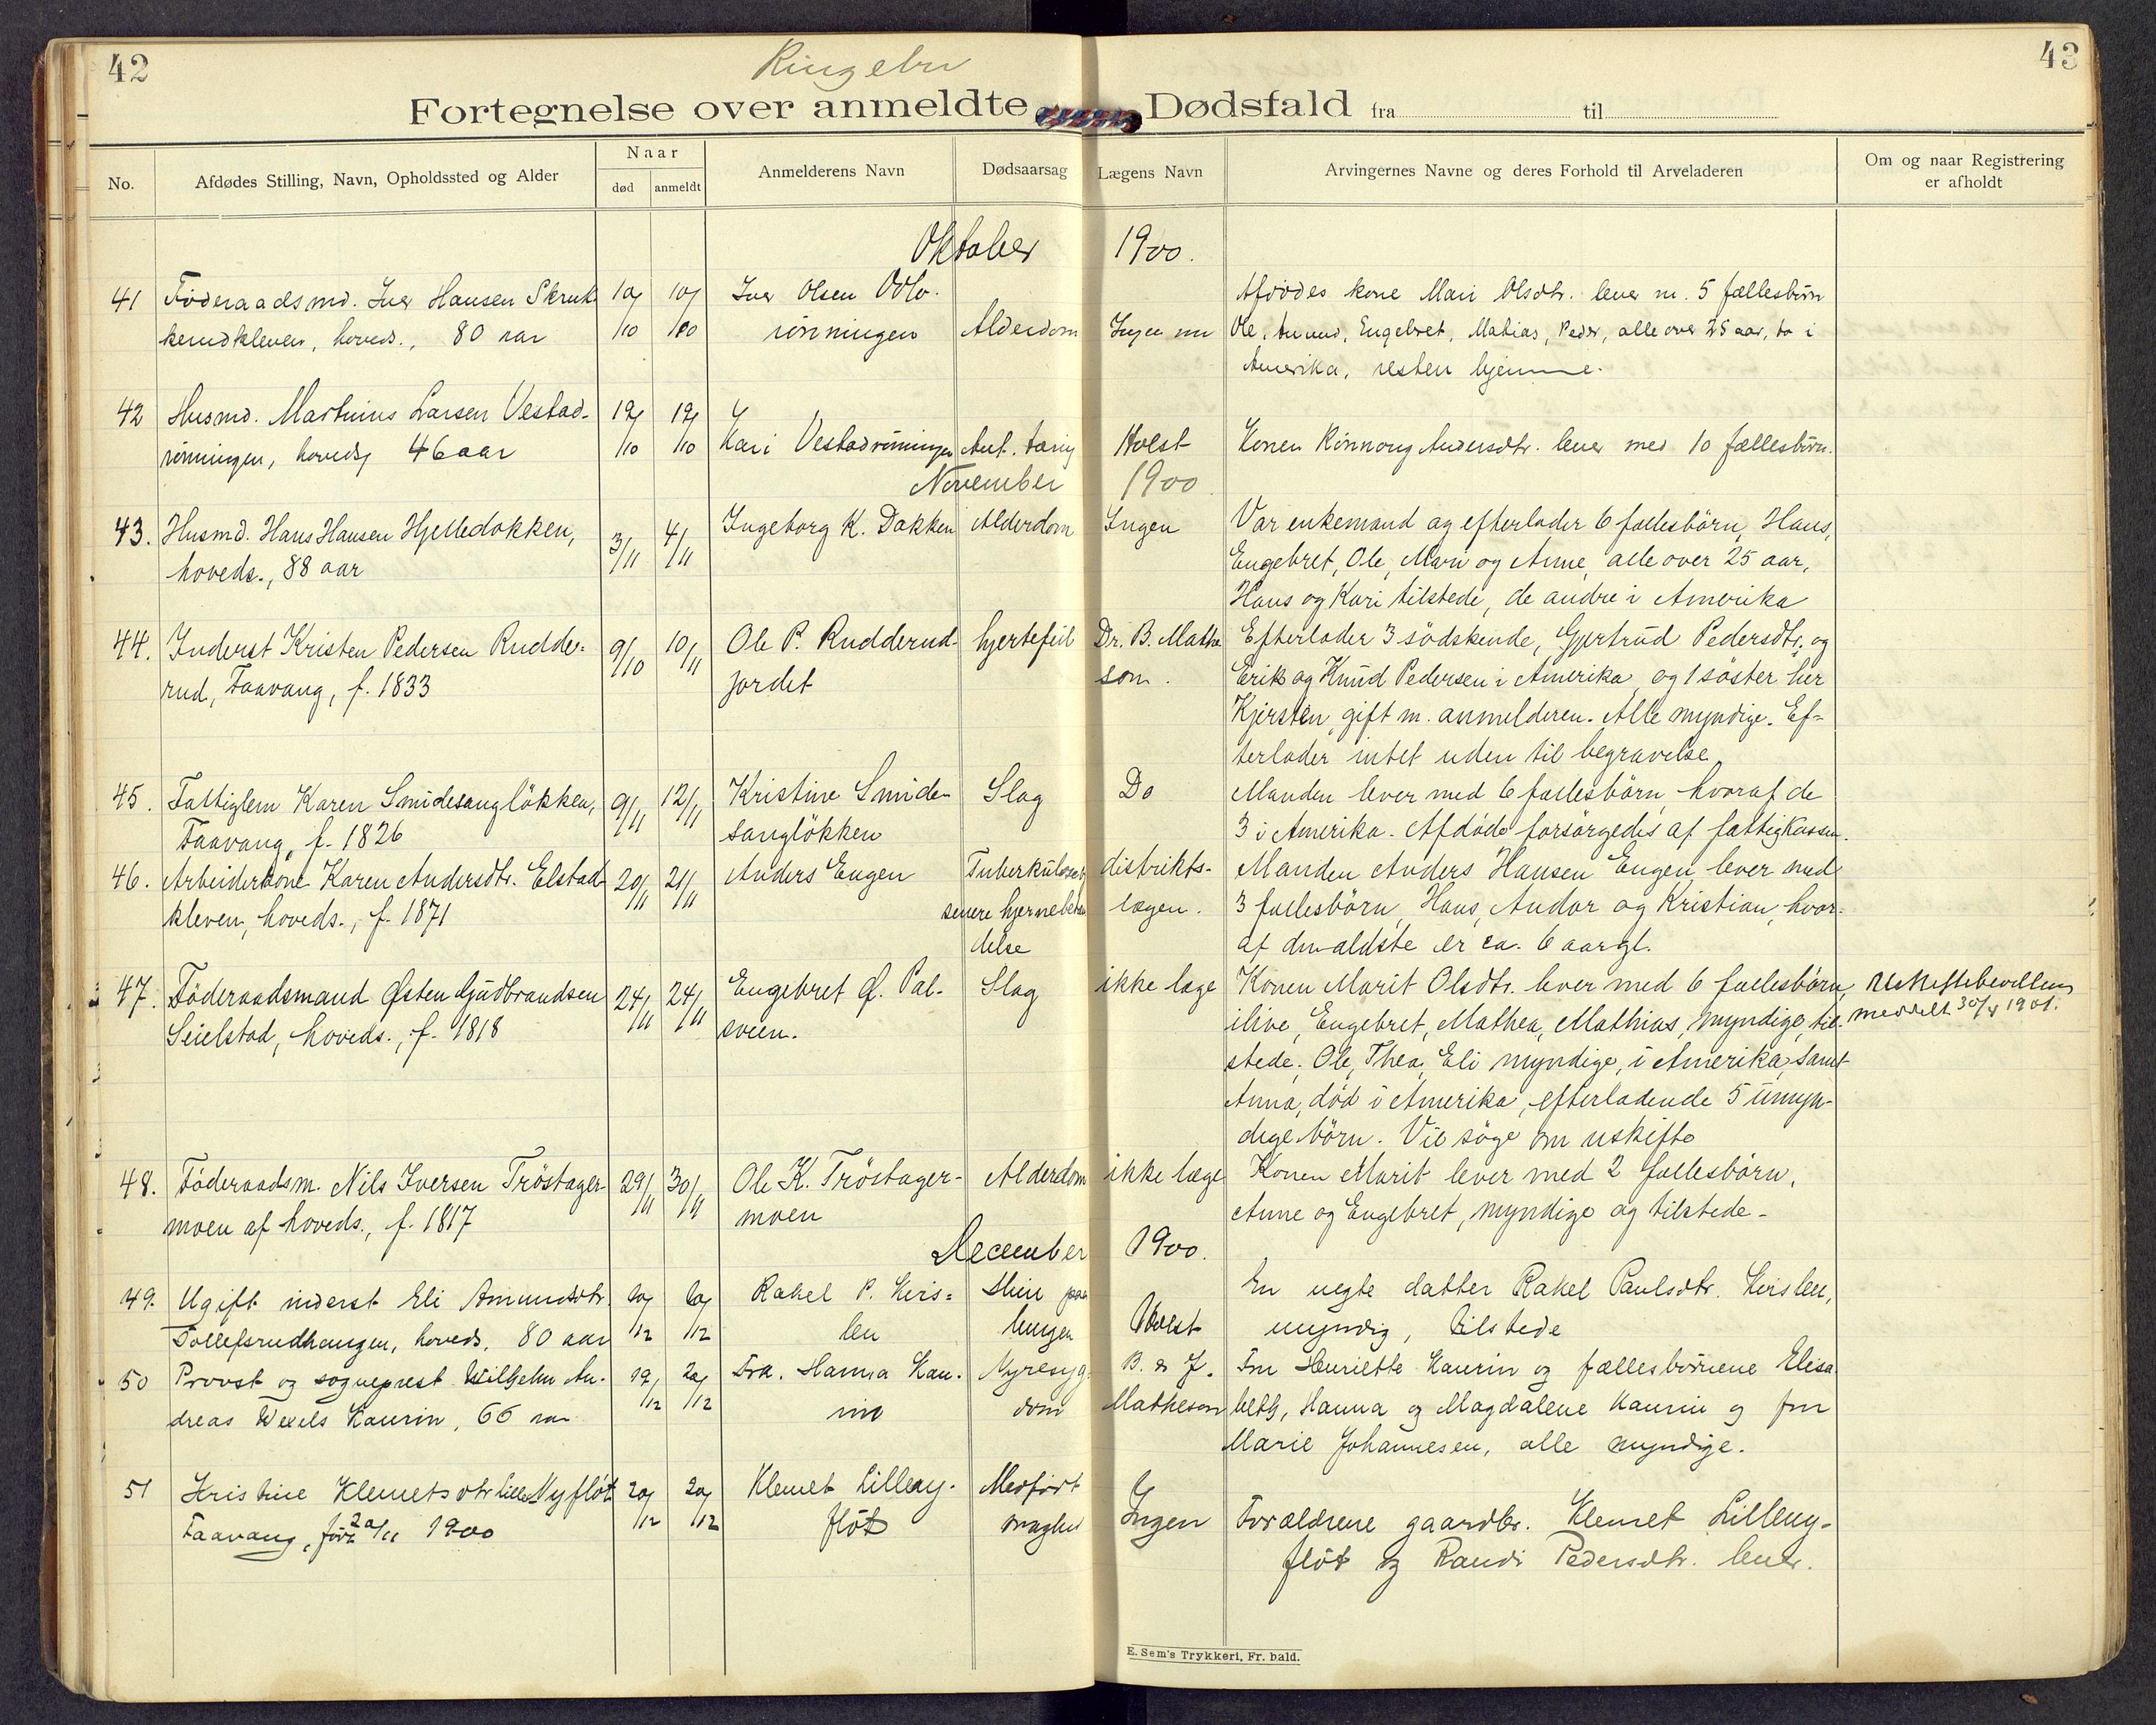 42
Ringebu
43
Fortegnelse over anmeldte Dødsfald fra til
No.
Afdødes Stilling, Navn, Opholdssted og Alder
Naar
død
anmeldt
Anmelderens Navn
Dødsaarsag
Lægens Navn
Arvingernes Navne og deres Forhold til Arveladeren
Om og naar Registrering
er afholdt
Oktober 1900.
41 Føderaadsmd. Iver Hansen Skruk- 10/ 10/ Iver Olsen Afdødes kone Mari Olsdtr. lever m. 5 fællesbørn
kerudkleven, hoveds., 80 aar /10 /10 rønningen Alderdom Ingen Ole, Amund, Engebret, Mathias, Peder, alle over 25 aar, to i
Amerika, resten hjemme.
42 Husmd. Martinus Larsen Vestad- 12/ 12/
rønningen, hoveds, 46 aar /10 /10 Kari Vestadrønningen Holst Konen Rønnoug Andersdtr. lever med 10 fællesbørn.
November 1900
43. Husmd. Hans Hansen Hjelledokken, 3/11 4/11 Ingeborg K. Dokken Alderdom Ingen Var enkemand og efterlader 6 fællesbörn, Hans,
hoveds., 88 aar Engebret, Ole, Mari og Anne, alle over 25 aar,
Hans og Kari tilstede, de andre i Amerika
44. Inderst Kristen Pedersen Rudde- 9/10 10/11 Ole P. Rudderud- hjertefeil Dr. B. Mathe Efterlader 3 södskende, Gjertrud Pedersdtr. og
rud, Faavang, f. 1833 jordet son. Erik og Knud Pedersen i Amerika og 1 söster her
Kjersten, gift m. anmelderen. Alle myndige. Ef-
terlader intet uden til begravelse
45. Fattiglem Karen Smidesanglökken, 9/11 12/11 Kristine Smide- Slag Do Manden lever med 6 fællesbörn, hvoraf de
Faavang, f. 1826 sanglökken 3 i Amerika. Afdöde forsörgedes af fattigkassen.
46. Arbeiderkone Karen Andersdtr. Elstad- 20/11 21/11 Anders Engen Tuberkulose, distrikts- Manden Anders Hansen Engen lever med
kleven, hoveds., f. 1871 senere hjernebetæn lægen. 3 fællesbörn, Hans, Andor og Kristian, hvor-
delse af den ældste er ca. 6 aar gl.
47. Föderaadsmand Østen Gudbrandsen 24/11 24/11 Engebret Ø. Pal- Slag ikke læge Konen Marit Olsdtr. lever med 6 fællesbörn, Uskiftebevillen
Seielstad, hoveds., f. 1818 sveen. ilive, Engebret, Mathea, Mathias, myndige, til- meddelt 30/4 1901.
stede, Ole, Thea, Eli myndige, i Amerika, samt
Anna, död i Amerika, efterladende 5 umyn-
dige börn. Vil söge om uskifte
48. Föderaadsm. Nils Iversen Tröstager- 29/11 30/11 Ole K. Tröstager- Alderdom ikke læge Konen Marit lever med 2 fællesbörn,
moen af hoveds., f. 1817 moen Anne og Engebret, myndige og tilstede.
December 1900.
49. Ugift inderst Eli Amundsdtr. Rakel P. Kirs- Sliim paa En uegte datter Rakel Paulsdtr. Kirslen,
Tollefsrudhaugen, hoveds, 80 aar /12 /12 len lungen Holst myndig, tilstede
50 Provst og sogneprest Wilhelm An- 19/ 20/ Frk. Hanna Kau- Nyresyg B. & J. Fru Henriette Kaurin og fællesbørnene Elisa
dreas Wexels Kaurin, 66 aar /12 /12 rin dom Matheson beth, Hanna og Magdalene Kaurin og fru
Marie Johannesen, alle myndige.
51 Kristine Klemetsdtr Lille Nyfløt 20/ 20/ Klemet Lilleny- Medført
Faavang, født 20/11 1900 /12 /12 fløt magler Ingen Forældrene gaardbr. Klemet Lilleny-
fløt og Randi Pedersdtr. lever.
E. Sem's Trykkeri, Fr. hald.